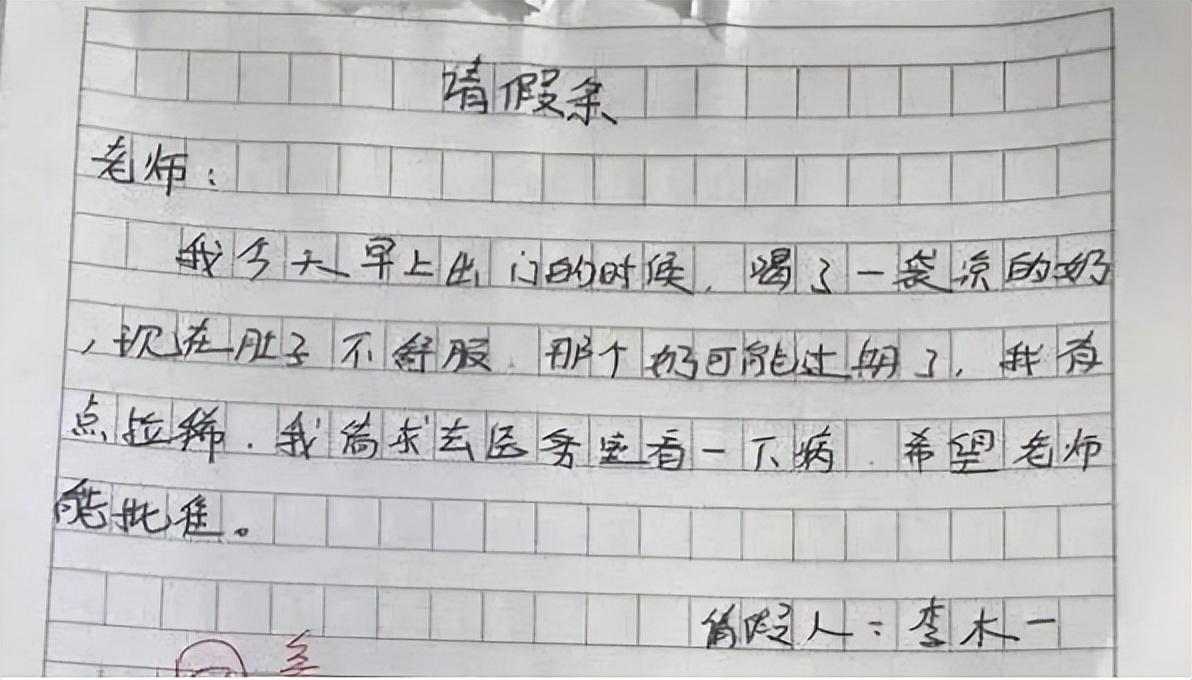 请假条
老师：
我今天早上出门的时候，喝了一袋凉的奶
，现在肚子不舒服．那个奶可能过期了，我有
点拉稀．我请求去医务室看一下病．希望老师
能批准。
请假人：李木一